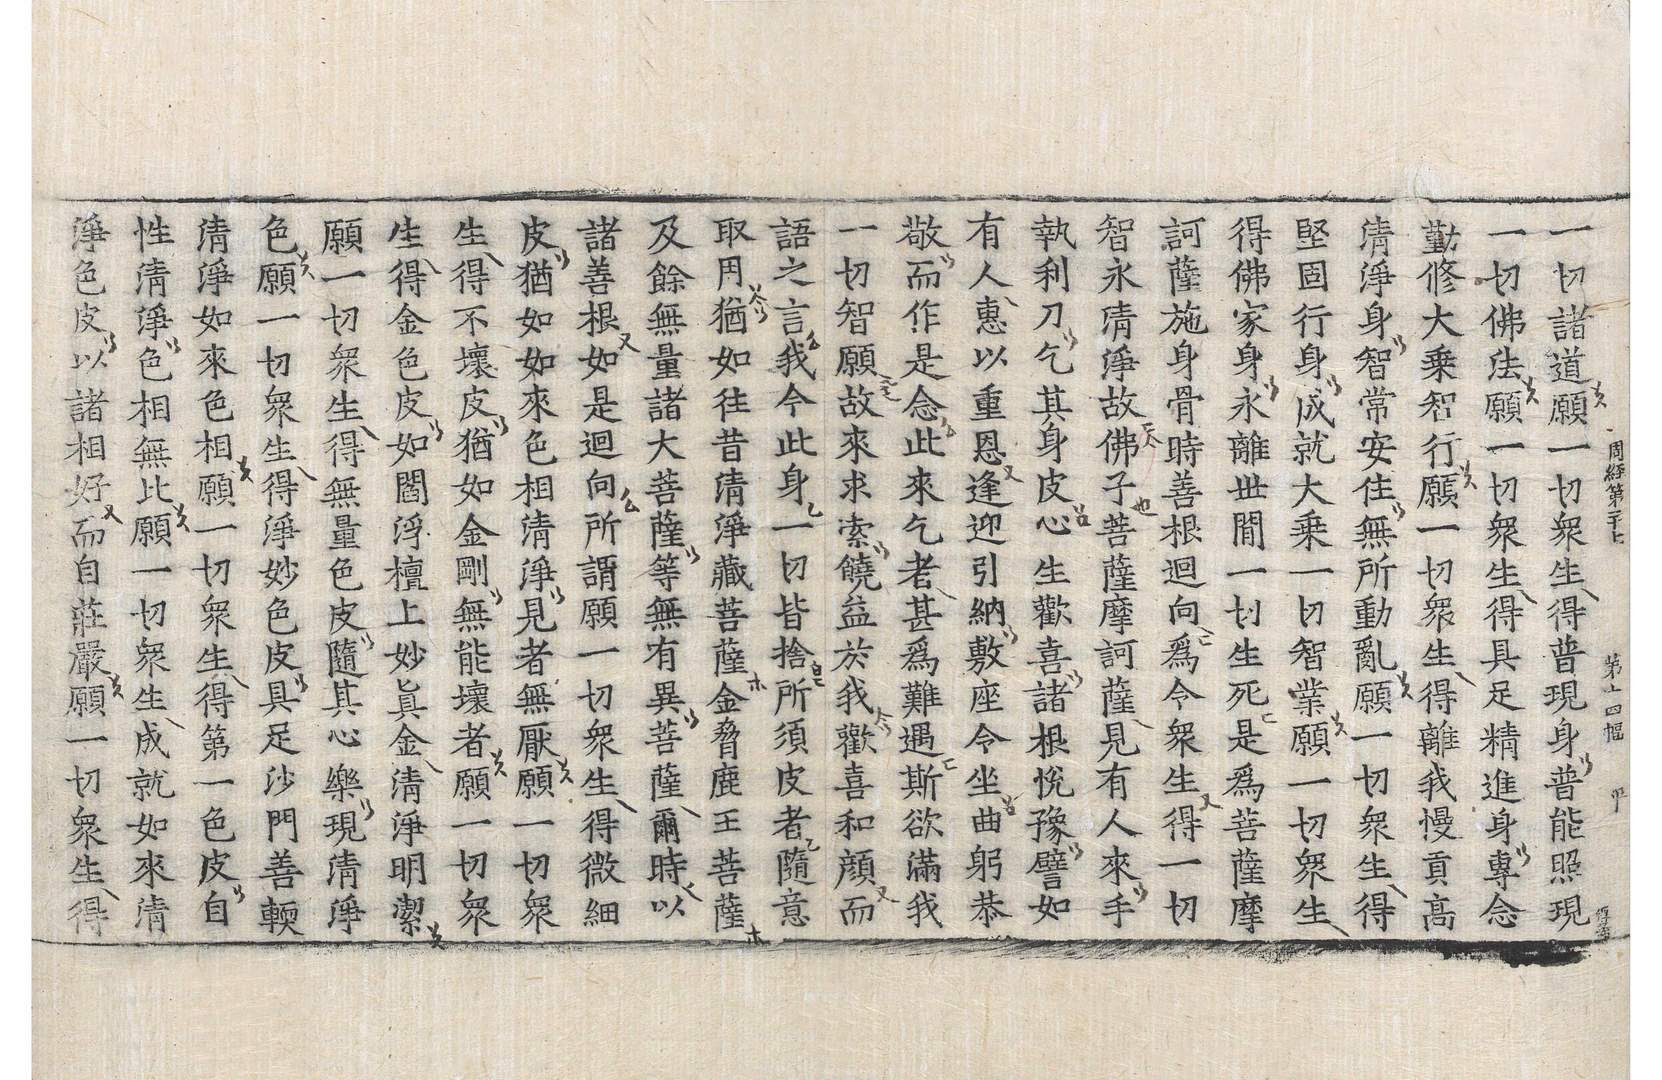 周經第二十七 第十四幅
一切諸道願一切衆生得普現身普能照現
一切佛法願一切衆生得具足精進身專念
勤修大乗智行願一切衆生得離我慢貢髙
清淨身智常安住無所動亂願一切衆生得
堅固行身成就大乗一切智業願一切衆生
得佛家身永離世間一切生死是爲菩薩摩
訶薩施身骨時善根迴向爲令衆生得一切
智永清淨故佛子菩薩摩訶薩見有人來手
執利刀乞其身皮心生歡喜諸根恱豫譬如
有人惠以重恩逢迎引納敷座令坐曲躬恭
敬而作是念此來乞者甚爲難遇斯欲滿我
一切智願故來求索饒益於我歡喜和顔而
語之言我今此身一切皆捨所須皮者隨意
取用猶如往昔清淨藏菩薩金脅鹿王菩薩
及餘無量諸大菩薩等無有異菩薩爾時以
諸善根如是迴向所謂願一切衆生得微細
皮猶如如來色相清淨見者無厭願一切衆
生得不壞皮猶如金剛無能壞者願一切衆
生得金色皮如閻浮檀上妙眞金清淨明潔
願一切衆生得無量色皮隨其心樂現清淨
色願一切衆生得淨妙色皮具足沙門善軟
清淨如來色相願一切衆生得第一色皮自
性清淨色相無比願一切衆生成就如來清
淨色皮以諸相好而自莊嚴願一切衆生得